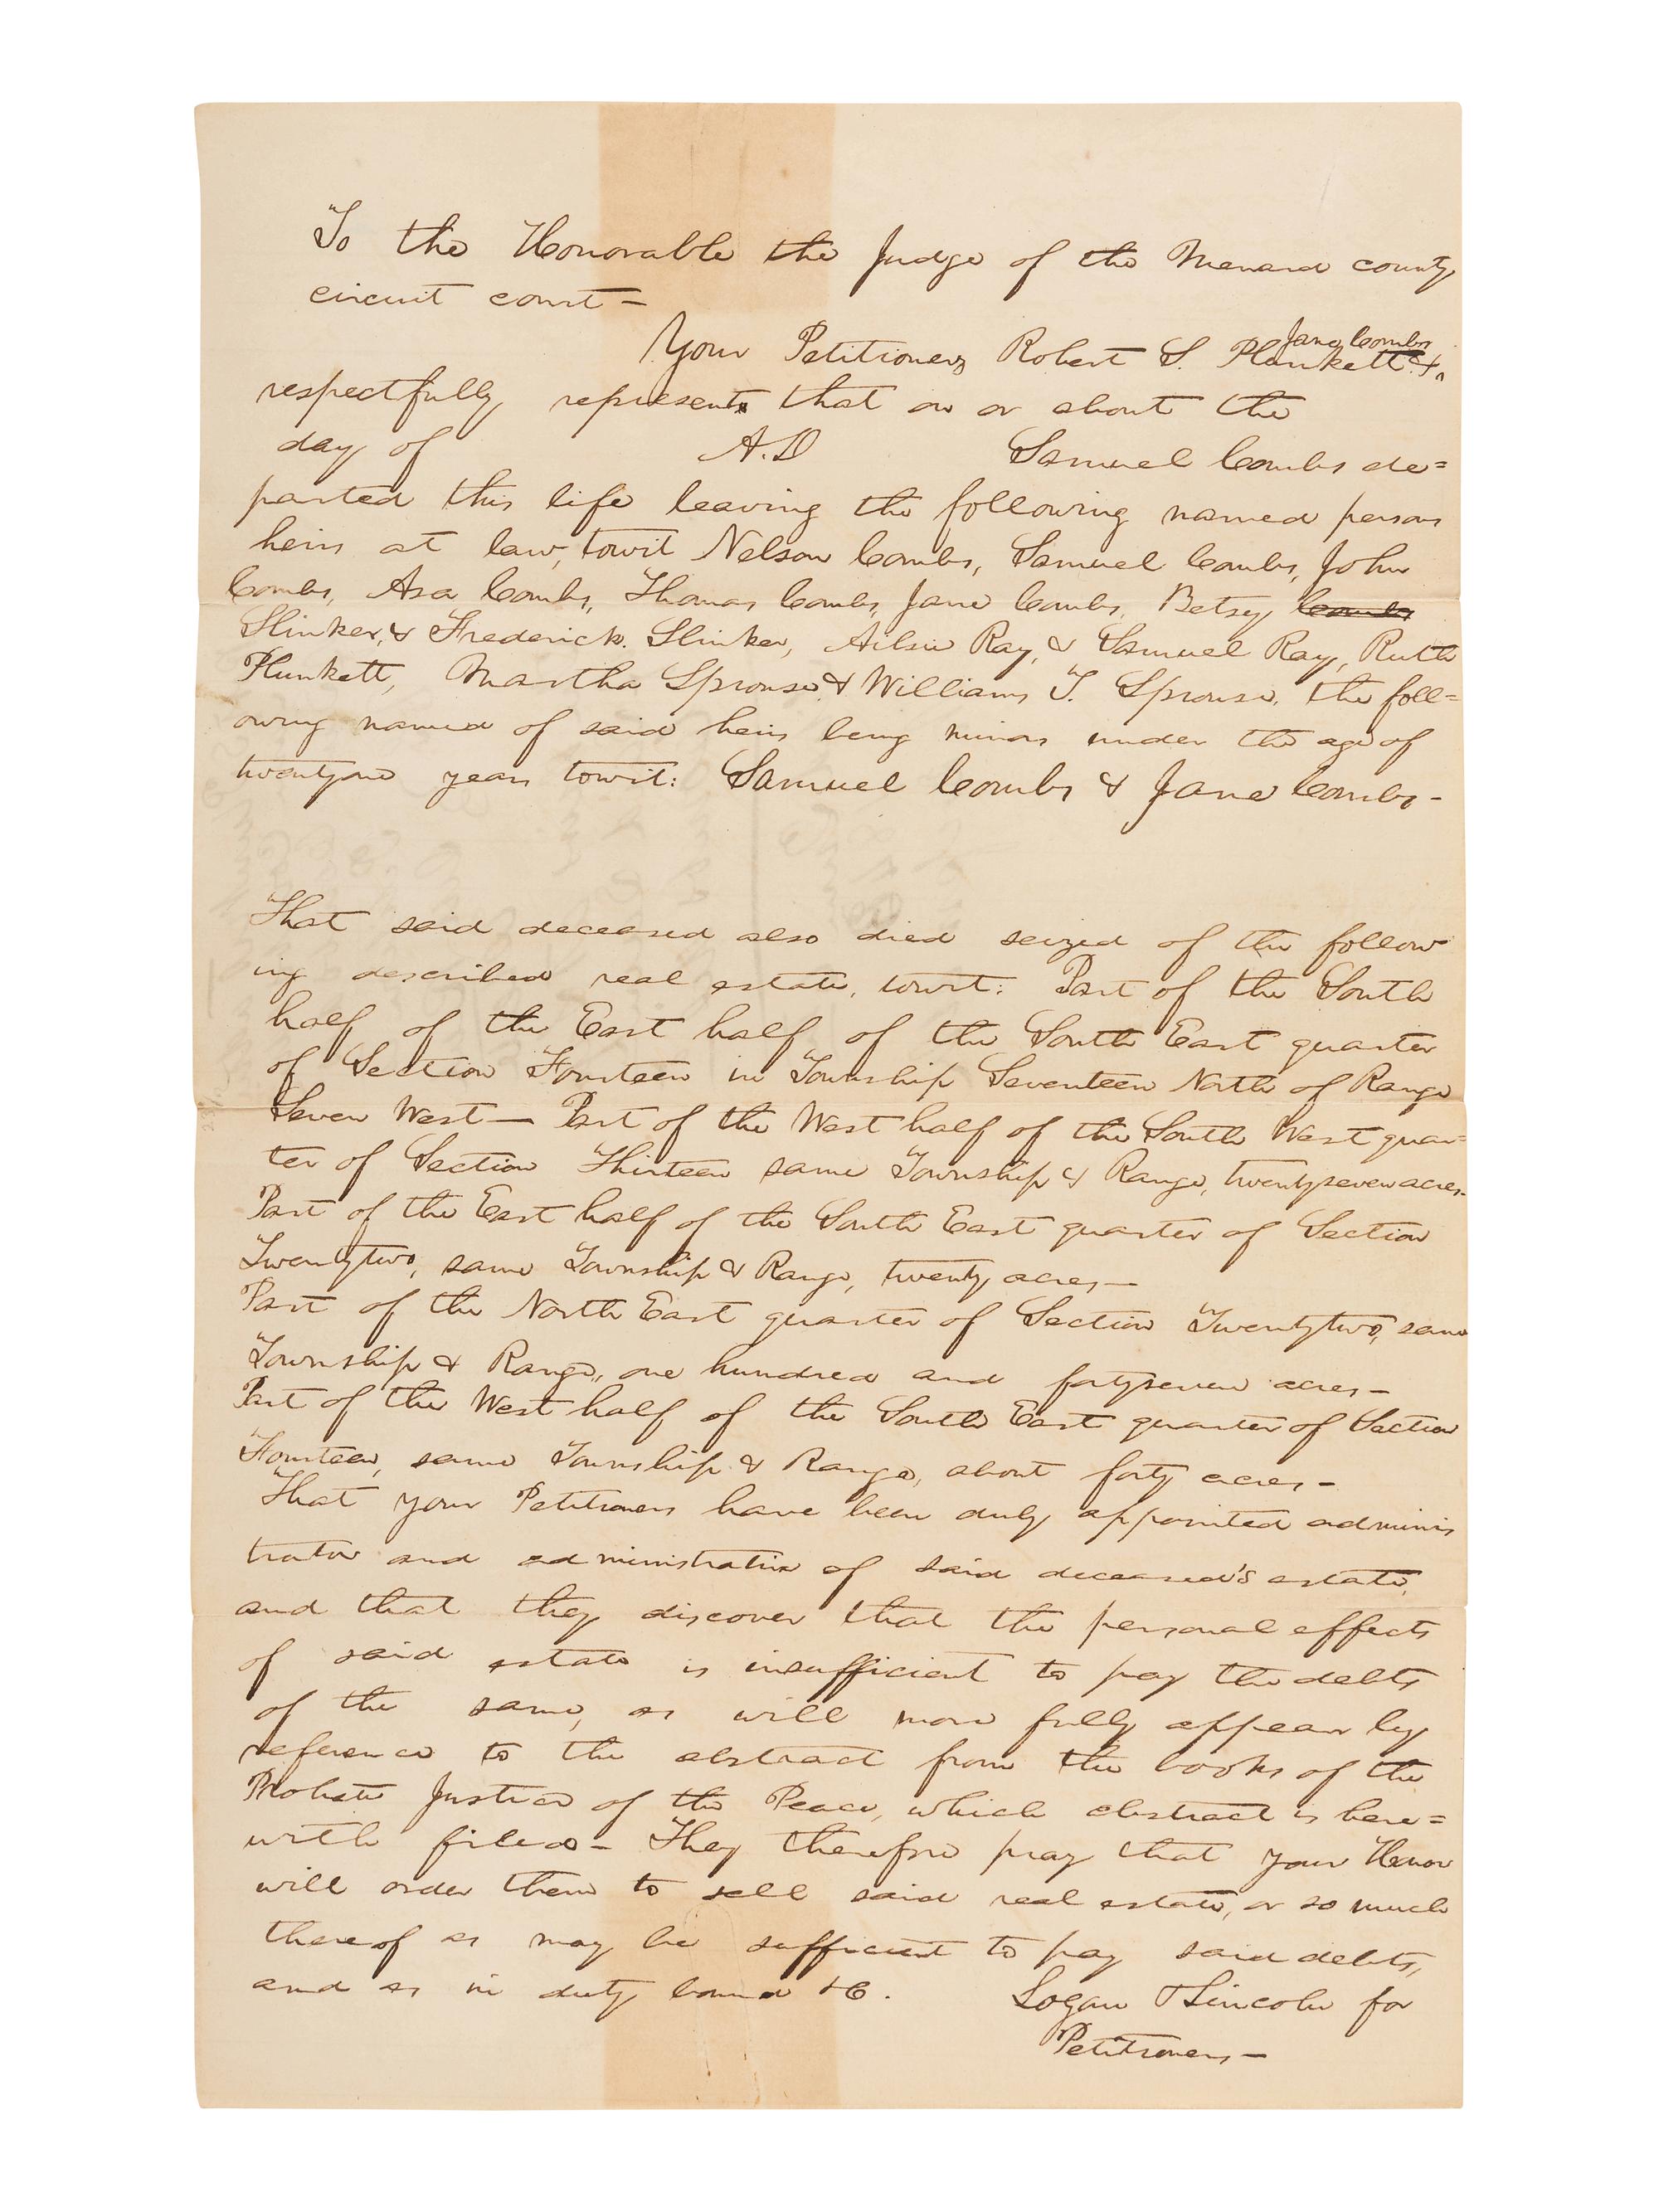 To the Honorable the Judge of the Menard county
circuit court =
Jane Combs
Your Petitioners Robert S. Plunkett &
respectfully represents that on or about the
day of A.D Samuel Combs de=
parted this life leaving the following named persons
heirs at law, towit Nelson Combs, Samuel Combs, John
Combs, Asa Combs, Thomas Combs, Jane Combs, Betsy Combs
Slinker, & Frederick Slinker, Ailsie Ray, & Samuel Ray, Ruth
Plunkett, Martha Sprouse & William T. Sprouse, the foll=
owing named of said heirs being minors under the age of
twentyone years towit: Samuel Combs & Jane Combs -
That said deceased also died seized of the follow
ing described real estate, towit: Part of the South
half of the East half of the South East quarter
of Section Fourteen in Township Seventeen North of Range
Seven West — Part of the West half of the South West quar=
ter of Section Thirteen same Township & Range, twentyseven acres-
Part of the East half of the South East quarter of Section
Twentytwo, same Township & Range, twenty acres —
Part of the North East quarter of Section Twentytwo, same
Township & Range, one hundred and fortyseven acres -
Part of the West half of the South East quarter of Section
Fourteen, same Township & Range, about forty acres -
That your Petitioners have been duly appointed adminis
trator and administratrix of said deceased's estate,
and that they discover that the personal effects
of said estate is insufficient to pay the debts
of the same, as will more fully appear by
reference to the abstract from the books of the
Probate Justice of the Peace, which abstract is here=
with filed - They therefore pray that your Honor
will order them to sell said real estate, or so much
thereof as may be sufficient to pay said debts,
and as in duty bound &c.
Logan & Lincoln for
Petitioners —